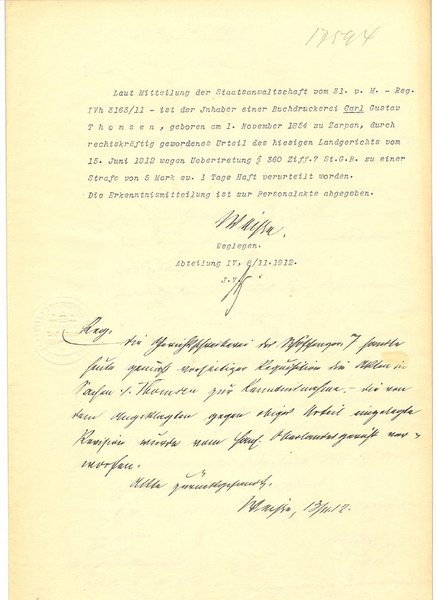 17594
Laut Mitteilung der Staatsanwaltschaft vom 31. v. M. - Reg.
IVh 3163/11 - ist der Jnhaber einer Buchdruckerei Carl Gustav
Thomsen, geboren am 1. November 1854 zu Zarpen, durch
rechtskräftig gewordenes Urteil des hiesigen Landgerichts vom
15. Juni 1912 wegen Uebertretung § 360 Ziff.7 St.G.B. zu einer
Strafe von 5 Mark ev. 1 Tage Haft verurteilt worden.
Die Erkenntnismitteilung ist zur Personalakte abgegeben.
Weiße.
Weglegen.
Abteilung IV, 8/11.1912.
J.V.
Reg.
die Gerichtsschreiberei des Schöffenger. 7 sandte
heute gemäß vorheriger Requisition die Akten in
Sachen c/. Thomsen zur Kenntnisnahme. - die von
dem Angeklagten gegen obiges Urteil eingelegte
Revision wurde vom Hans. Oberlandesgericht ver-
worfen.
Akte zurückgesandt.
Weiße, 13/11.12.